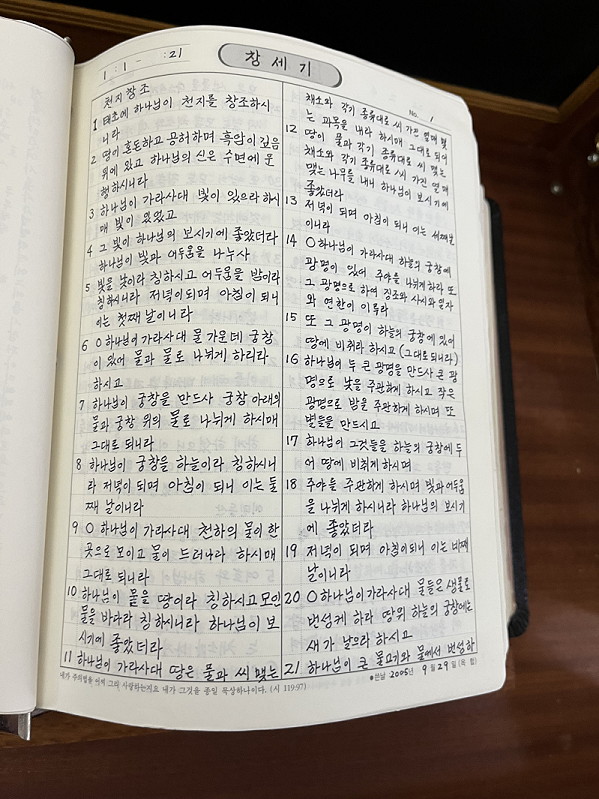 1 : 1 - : 21
창세기
No. 1
천지창조
1 태초에 하나님이 천지를 창조하시
니라
2 땅이 혼돈하고 공허하며 흑암이 깊음
위에 있고 하나님의 신은 수면에 운
행하시니라
3 하나님이 가라사대 빛이 있으라 하시
매 빛이 있었고
4 그 빛이 하나님의 보시기에 좋았더라
하나님이 빛과 어두움을 나누사
5 빛을 낮이라 칭하시고 어두움을 밤이라
칭하시니라 저녁이되며 아침이 되니
이는 첫째 날이니라
6 O 하나님이 가라사대 물 가운데 궁창
이 있어 물과 물로 나뉘게 하리라
하시고
7 하나님이 궁창을 만드사 궁창 아래의
물과 궁창 위의 물로 나뉘게 하시매
그대로 되니라
8 하나님이 궁창을 하늘이라 칭하시니
라 저녁이 되며 아침이 되니 이는 둘
째 날이니라
9 O 하나님이 가라사대 천하의 물이 한
곳으로 모이고 뭍이 드러나라 하시매
그대로 되니라
10 하나님이 뭍을 땅이라 칭하시고 모인
물을 바다라 칭하시니라 하나님이 보
시기에 좋았더라
11 하나님이 가라사대 땅은 풀과 씨 맺는
채소와 각기 종류대로 씨 가진 열매 맺
는 과목을 내라 하시매 그대로 되어
12 땅이 풀과 각기 종류대로 씨 맺는
채소와 각기 종류대로 씨 가진 열매
맺는 나무를 내니 하나님이 보시기에
좋았더라
13 저녁이 되며 아침이 되니 이는 세째날
이니라
14 O 하나님이 가라사대 하늘의 궁창에
광명이 있어 주야를 나뉘게 하라 또
그 광명으로 하여 징조와 사시와 일자
와 연한이 이루라
15 또 그 광명이 하늘의 궁창에 있어
땅에 비취라 하시고 (그대로 되니라)
16 하나님이 두 큰 광명을 만드사 큰 광
명으로 낮을 주관하게 하시고 작은
광명으로 밤을 주관하게 하시며 또
별들을 만드시고
17 하나님이 그것들을 하늘의 궁창에 두
어 땅에 비취게 하시며
18 주야를 주관하게 하시며 빛과 어두움
을 나뉘게 하시니라 하나님의 보시기
에 좋았더라
19 저녁이 되며 아침이되니 이는 네째
날이니라
20 O 하나님이 가라사대 물들은 생물로
번성케 하라 땅위 하늘의 궁창에는
새가 날으라 하시고
21 하나님이 큰 물고기와 물에서 번성하
내가 주의법을 어찌 그리 사랑하는지요 내가 그것을 종일 묵상하나이다. (시 119:97)
●쓴날 2005년 9월 29일 (목 함)